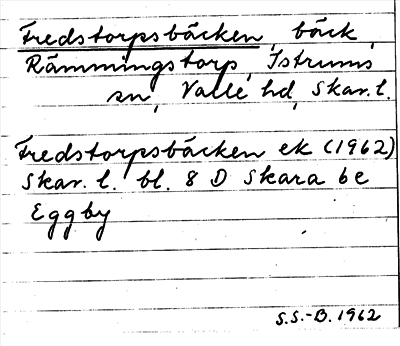 Fredstorpsbäcken, bäck,
Rämmingstorp, Istrums
sn, Valle hd, Skar. l.
Fredstorpsbäcken ek (1962)
Skar. l. bl. 8 D Skara 6e
Eggby
S.S.-B. 1962